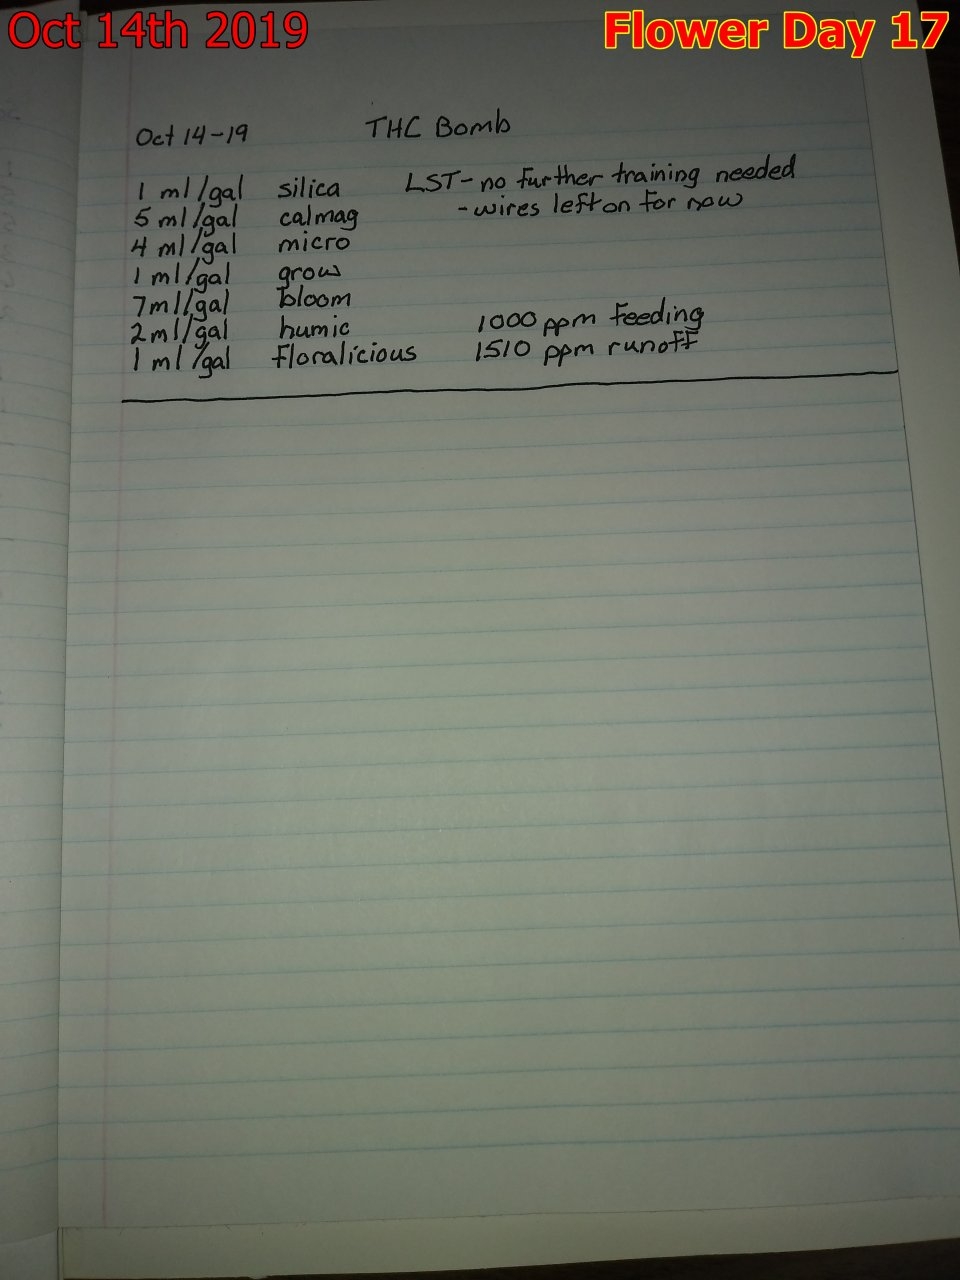 Oct 14th 2019
Flower Day 17
Oct 14-19 THC Bomb
1 ml/gal silica LST - no further training needed
5 ml/gal calmag - wires left on for now
4 ml/gal micro
1 ml/gal grow
7 ml/gal bloom
2 ml/gal humic 1000 ppm feeding
1 ml/gal floralicious 1510 ppm runoff